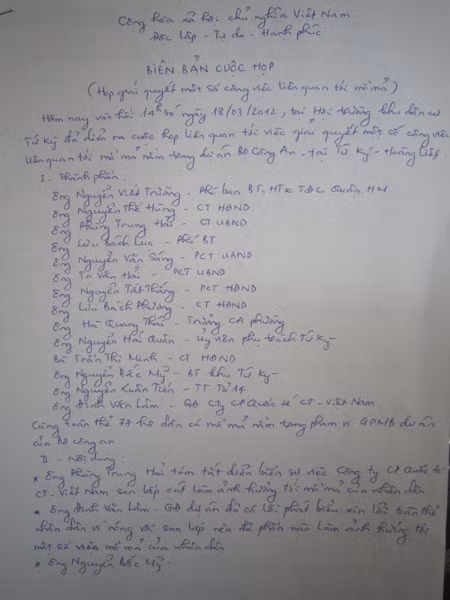 Cộng hòa xã hội chủ nghĩa Việt Nam
Độc lập - Tự do - Hạnh phúc
BIÊN BẢN CUỘC HỌP
(Họp giải quyết một số công việc liên quan tới mồ mả)
Hôm nay vào hồi 14h30 ngày 18/03/2012, tại Hội trường khu dân cư
Tứ Kỳ đã diễn ra cuộc họp liên quan tới việc giải quyết một số công việc
liên quan tới mồ mả nằm trong dự án Bộ Công An - tại Tứ Kỳ - Hoàng Liệt
I - Thành phần:
Ông Nguyễn Viết Trường - Phó ban BT, HTK TĐC Quận HM
Ông Nguyễn Thế Hùng - CT HĐND
Ông Phùng Trung Hải - CT UBND
Ông Lưu Bách Lua - Phó BT
Ông Nguyễn Văn Sáng - PCT UBND
Ông Tạ Văn Hải - PCT UBND
Ông Nguyễn Tất Thắng - PCT HĐND
Ông Lưu Bách Phương - CT HĐND
Ông Hà Quang Thái - Trưởng CA phường
Ông Nguyễn Hải Quân - Ủy viên phụ trách Tứ Kỳ
Bà Trần Thị Minh - CT HĐND
Ông Nguyễn Bắc Mỹ - BT khu Tứ Kỳ
Ông Nguyễn Xuân Tiến - TT Tổ 14
Ông Đinh Văn Lâm - GĐ CTy CP Quốc tế CT - Việt Nam
Cùng toàn thể 77 hộ dân có mồ mả nằm trong phạm vi GPMB dự án
của Bộ công an
II - Nội dung:
* Ông Phùng Trung Hải tóm tắt diễn biến sự việc Công ty CP Quốc tế
CT - Việt Nam san lấp cát làm ảnh hưởng tới mồ mả của nhân dân
* Ông Đinh Văn Lâm - GĐ dự án đã có lời phát biểu xin lỗi toàn thể
nhân dân vì nóng vội san lấp nên đã phần nào làm ảnh hưởng tới
một số mồ mả của nhân dân
* Ông Nguyễn Bắc Mỹ: